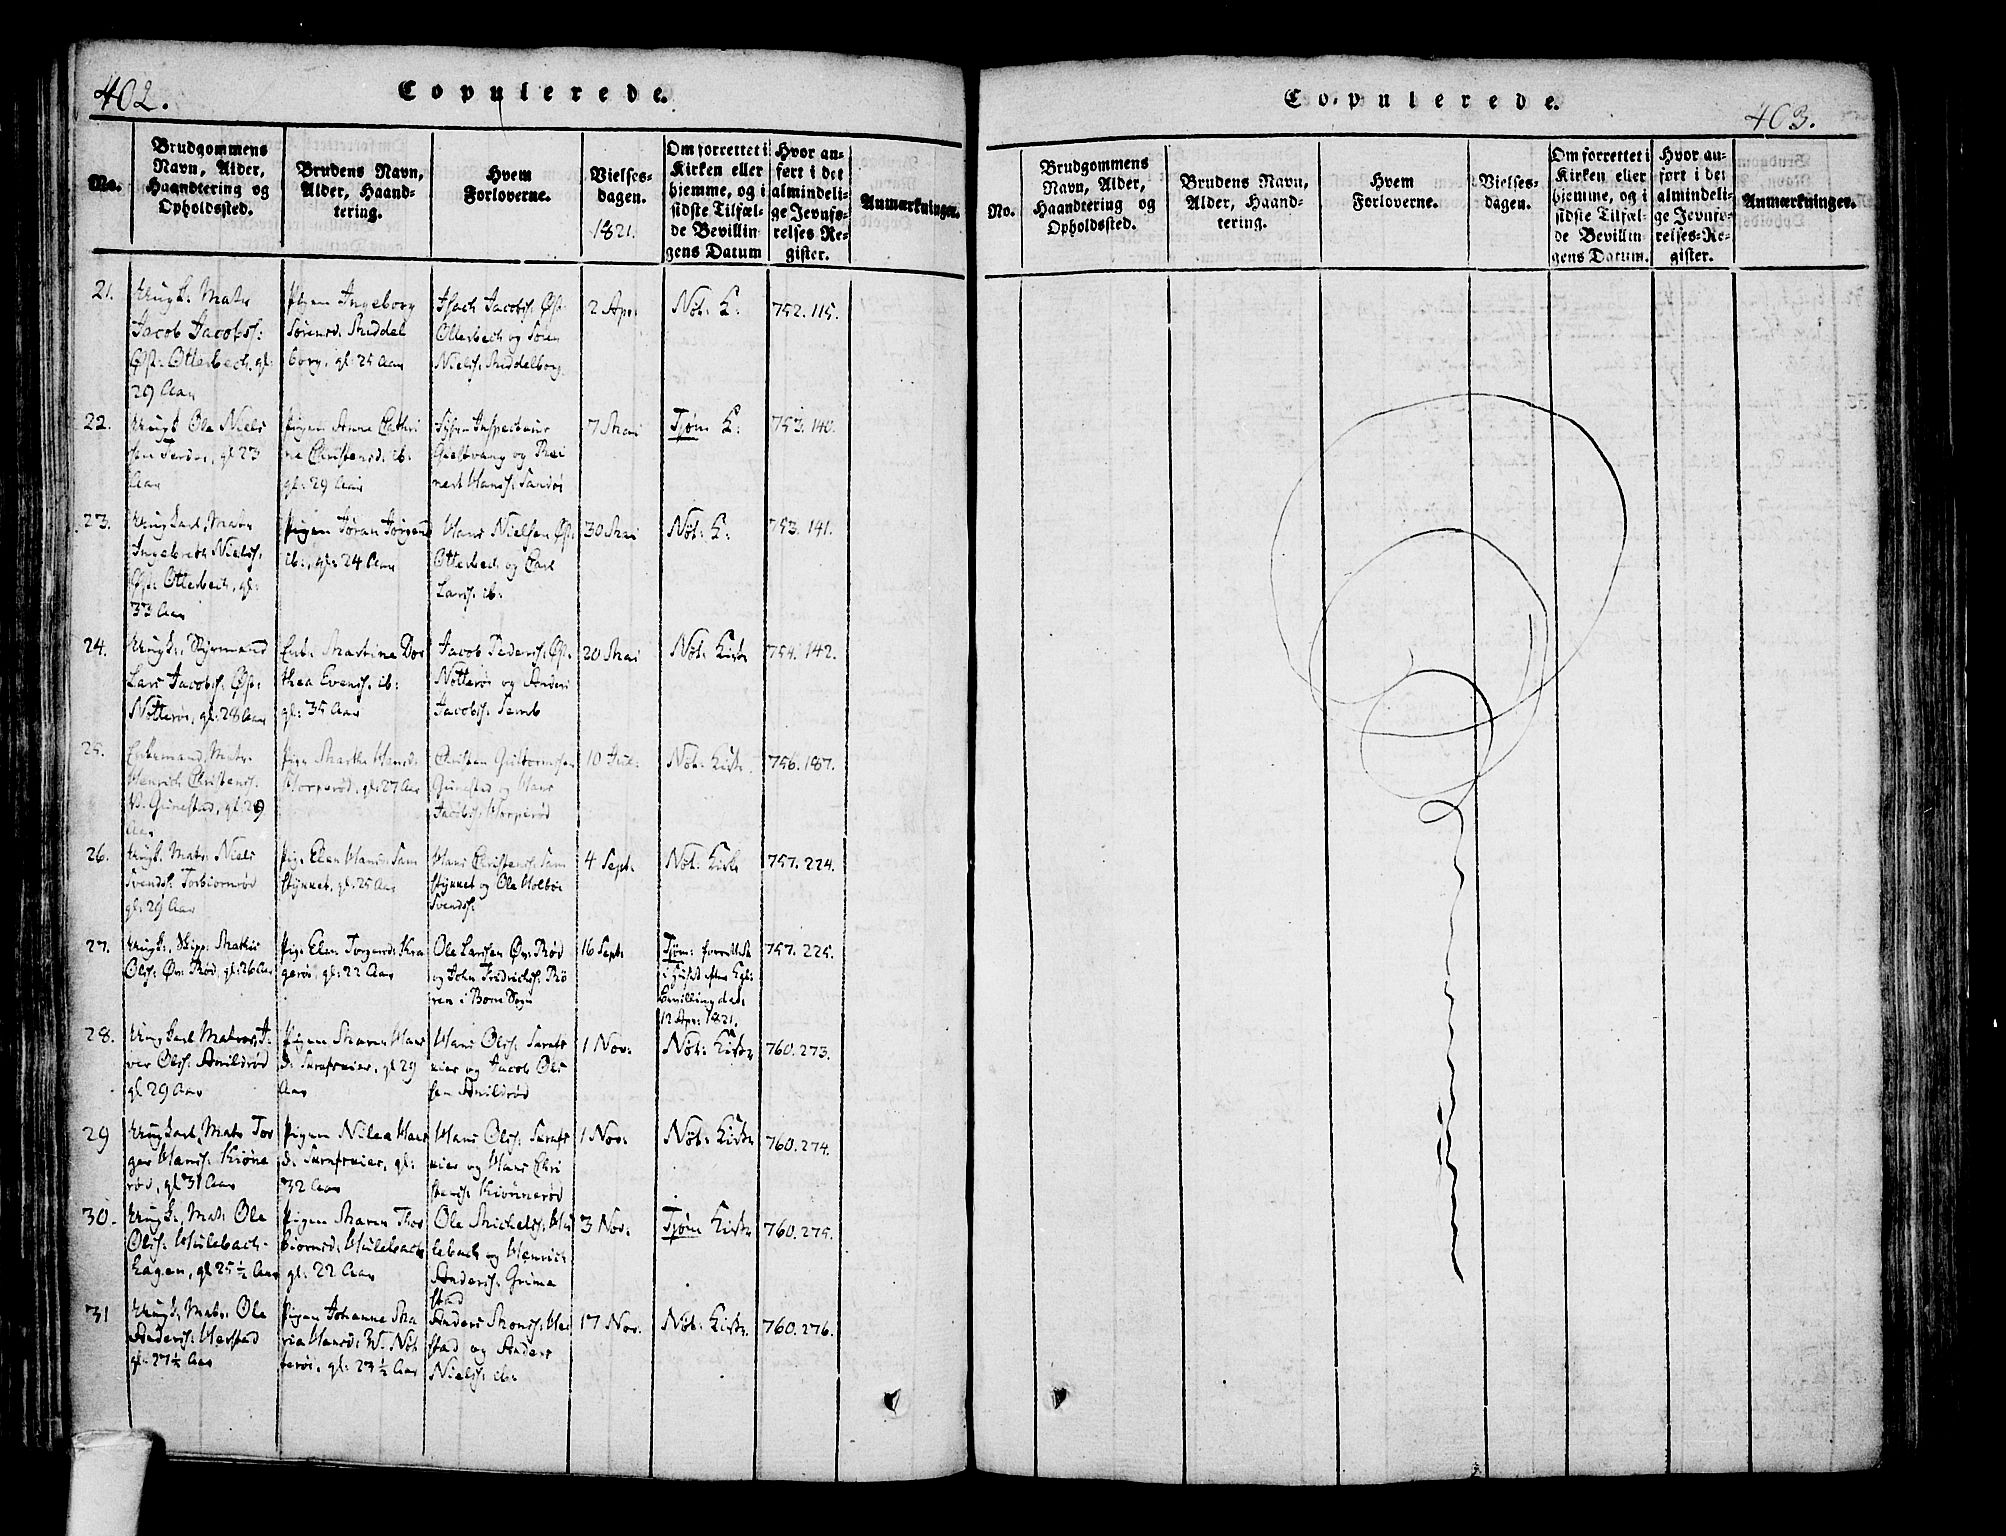 402.
Copulerede.
No.
Brudgommens
Navn, Alder,
Haandtering og
Opholdssted.
Brudens Navn,
Alder, Haand-
tering.
Hvem
Forloverne.
Vielses-
dagen.
1821.
Om forrettet i
Kirken eller
hjemme, og i
sidste Tilfæl-
de Bevillin
gens Datum
Hvor an-
ført i det
almindeli-
ge Jevnfø-
relses-Re-
gister.
Anmærkninger.
21.
Mats
Jacob Jacobs:
Øst: Otterbech, gl:
29 Aar
Ingeborg
Sørensd:
borg, gl: 25 Aar
Jacobs: Øst:
Otterbech og Søren
Niels:
2 Apr:
Nøt: K:
752. 115.
22.
Ungk Ole Niels
sen gl: 23
Aar
Pigen Anne Cathri
ne Christensd: ib:
gl: 29 Aar
Inspecteur
og Rei
nert Hans: Sandøe
7 Mai
Tjøm K:
753. 140.
23.
Ungkarl, Mats
Ingebret Niels:
Øst: Otterbech, gl:
33 Aar
Pigen Jøran
ib:, gl: 24 Aar
Hans Nielsen Øst:
Otterbech og Carl
Lars: ib:
30 Mai
Nøt: K:
753. 141.
24.
Ungk:, Styrmand
Lars Jacobs: Øst:
Nøtterøe, gl: 28 Aar
Enk: Martine Dor
thea Evens: ib:
gl: 35 Aar
Jacob Peders: Øst:
Nøtterøe og Anders
Jacobs: Semb
20 Mai
Nøt: Kirke
754. 142.
25.
Enkemand, Mats
Henrich Christens:
V. Grimestad, gl: 29
Aar
Pige Marthe Hansd:
Torperød, gl: 27 Aar
Christen Guttormsen
Grimestad og Hans
Jacobs: Torperød
10 Jul:
Nøt: Kirke
756. 187.
26.
Ungk: Mats Niels
Svends: Torbiornrød
gl: 29 Aar
Pig: Elen Hansd: Sam
stynnet, gl: 25 Aar
Hans Christens: Sam
stynnet og Ole Holbøe
Svends:
4 Sept:
Nøt: Kirke
757. 224.
27.
Ungk:, Skipp: Mathis
Ols: Ør: Rød, gl: 26 Aar
Pig: Elen Kra
gerøe, gl: 22 Aar
Ole Larsen Ør: Rød
og John Fredrichs: Rø
ren i Borre Sogn
16 Sept:
Tjøm: forrettet
i Huset efter Kgl:
Bevilling dat:
12 Apr: 1821.
757. 225.
28.
Ungkarl, Matros, I
ver Ols: Smildrød
gl 29 Aar
Pigen Maren Hans
d: gl 29
Aar
Hans Ols:
og Jacob Ols
sen Smildrød
1 Nov:
Nøt: Kirke
760. 273.
29
Ungkarl, Mats Tor
ger Hans: Kiønne
rød, gl 31 Aar
Pigen Nilea Hans
d: gl:
32 Aar
Hans Ols:
og Hans Chri
stens: Kiønnerød
1 Nov:
Nøt: Kirke
760. 274.
30.
Ungk:, Mat: Ole
Ols: Hulebach-
hagen, gl 25 ½ Aar
Pigen Maren Thor
biornsd: Hulebach
gl: 22 Aar
Ole Michels: Hu
lebach og Henrich
Anders: Grime
stad
3 Nov:
Tjøm Kirke
760. 275.
31
Ungk:, Mats: Ole
Anders: Herstad
gl: 27 ½ Aar
Pigen Johanne Ma
ria Hansd: V. Nøt
terøe, gl: 23 ½ Aar
Anders Mons: Her
stad og Anders
Niels: ib:
17 Nov.
Nøt: Kirke
760. 276.
Copulerede.
403.
No.
Brudgommens
Navn, Alder,
Haandtering og
Opholdssted.
Brudens Navn,
Alder, Haand-
tering.
Hvem
Forloverne.
Vielses-
dagen.
Om forrettet i
Kirken eller
hjemme, og i
sidste Tilfæl-
de Bevillin
gens Datum.
Hvor an-
ført i det
almindeli-
ge Jevnfø-
relses-Re-
gister.
Anmærkninger.